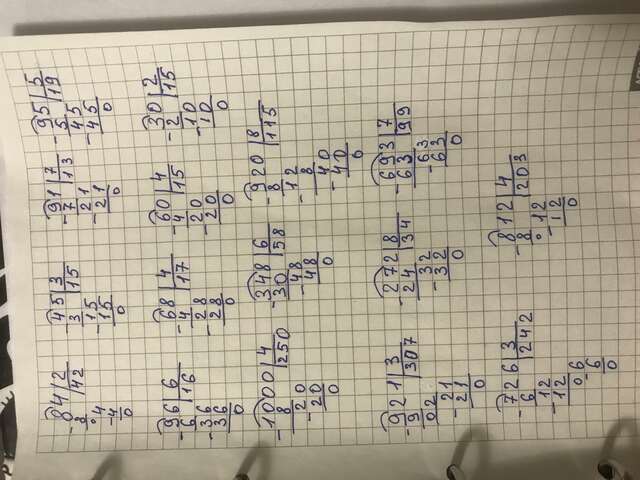 -84|2 -45|3 -91|7 -95|5
8 42 3 15 7 13 5 19
4 -15 -21 -45
-4 15 21 45
0 0 0 0
-96|6 -68|4 -60|4 -30|2
6 16 4 17 4 15 2 15
-36 -28 -20 -10
36 28 20 10
0 0 0 0
-1000|4 -348|6 -920|8
8 250 30 58 8 115
-20 -48 -12
20 48 8
0 0 -40
40
0
-921|3 -272|8 -693|7
9 307 24 34 63 99
02 -32 -63
-21 32 63
21 0 0
0
-726|3 -812|4
6 242 8 203
-12 -12
12 12
06 0
-6
0